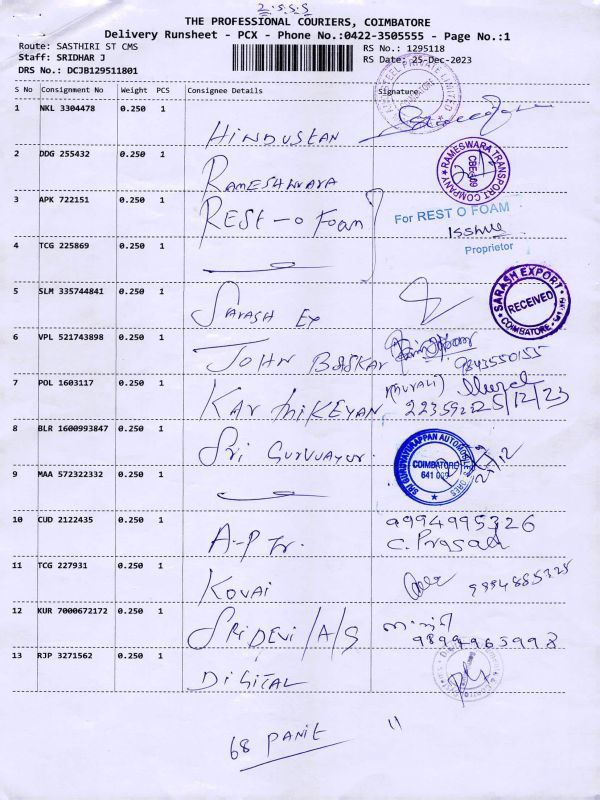 2.5.5.5
THE PROFESSIONAL COURIERS, COIMBATORE
Delivery Runsheet - PCX - Phone No.:0422-3505555 - Page No.:1
Route: SASTHIRI ST CMS
RS No.: 1295118
Staff: SRIDHAR J
RS Date: 25-Dec-2023
DRS No.: DCJB129511801
S No Consignment No Weight PCS Consignee Details Signature
1 NKL 3304478 0.250 1 HINDUSTAN
2 DDG 255432 0.250 1 RAMESHWARA
RAMESWARA TRANSPORT COMPANY CBE-009
3 APK 722151 0.250 1 REST-O FOAM
For REST O FOAM
Proprietor
4 TCG 225869 0.250 1
5 SLM 335744841 0.250 1 SARASH EX
SARASH EXPORT RECEIVED COIMBATORE
6 VPL 521743898 0.250 1 JOHN BASKAR
9843550155
7 POL 1603117 0.250 1 KARTHIKEYAN
(MURALI)
25/12/23
8 BLR 1600993847 0.250 1 SRI GURUVAYUR
SRI GURUVAYURAPPAN AUTOMOBILE STORES COIMBATORE
25/12
9 MAA 572322332 0.250 1
10 CUD 2122435 0.250 1 A-P Tr.
9994995326
C. Prasad
11 TCG 227931 0.250 1 KOVAI
12 KUR 7000672172 0.250 1 SRIDEVI/A/S
13 RJP 3271562 0.250 1 DIGITAL
68 PANIT "